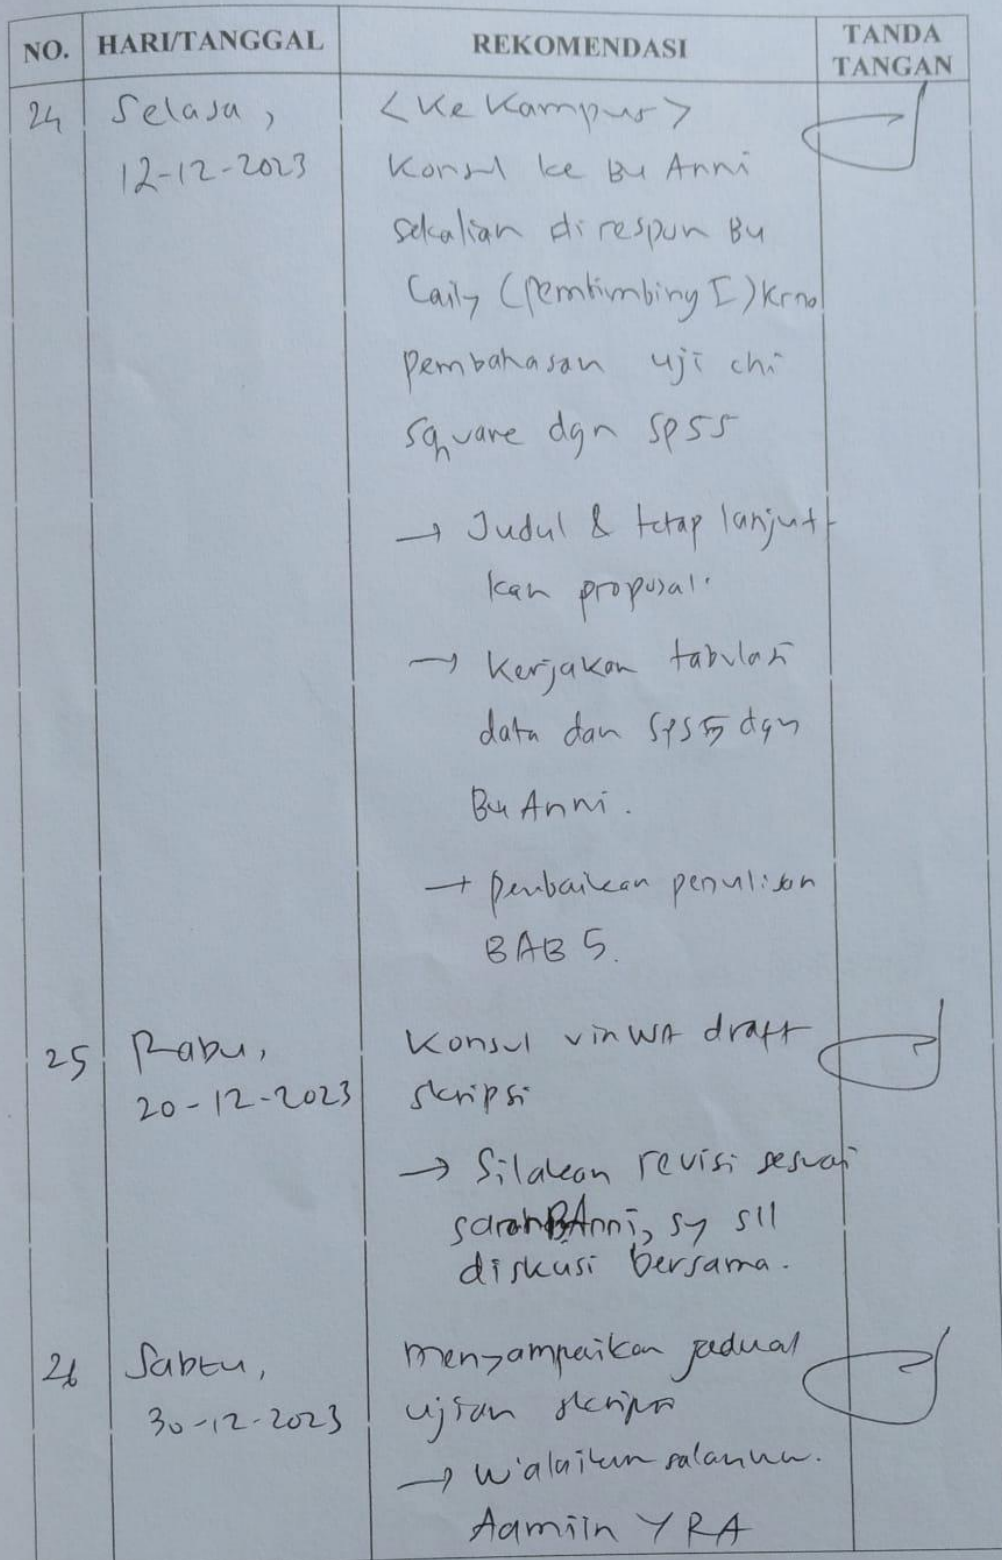 NO. HARI/TANGGAL REKOMENDASI TANDA TANGAN
24 Selasa, <Ke Kampus>
12-12-2023 Konsul ke Bu Anni
sekalian direspon Bu
Caily (Pembimbing I) Krna
pembahasan uji chi
square dgn SPSS
→ Judul & tetap lanjut
kan proposal.
→ Kerjakan tabulasi
data dan SPSS dgn
Bu Anni.
→ perbaikan penulisan
BAB 5.
25 Rabu, Konsul via WA draft
20-12-2023 skripsi
→ Silakan revisi sesuai
saran B Anni, sy sll
diskusi bersama.
26 Sabtu, menyampaikan jadual
30-12-2023 ujian skripsi
→ W'alaikum salamu.
Aamiin YRA